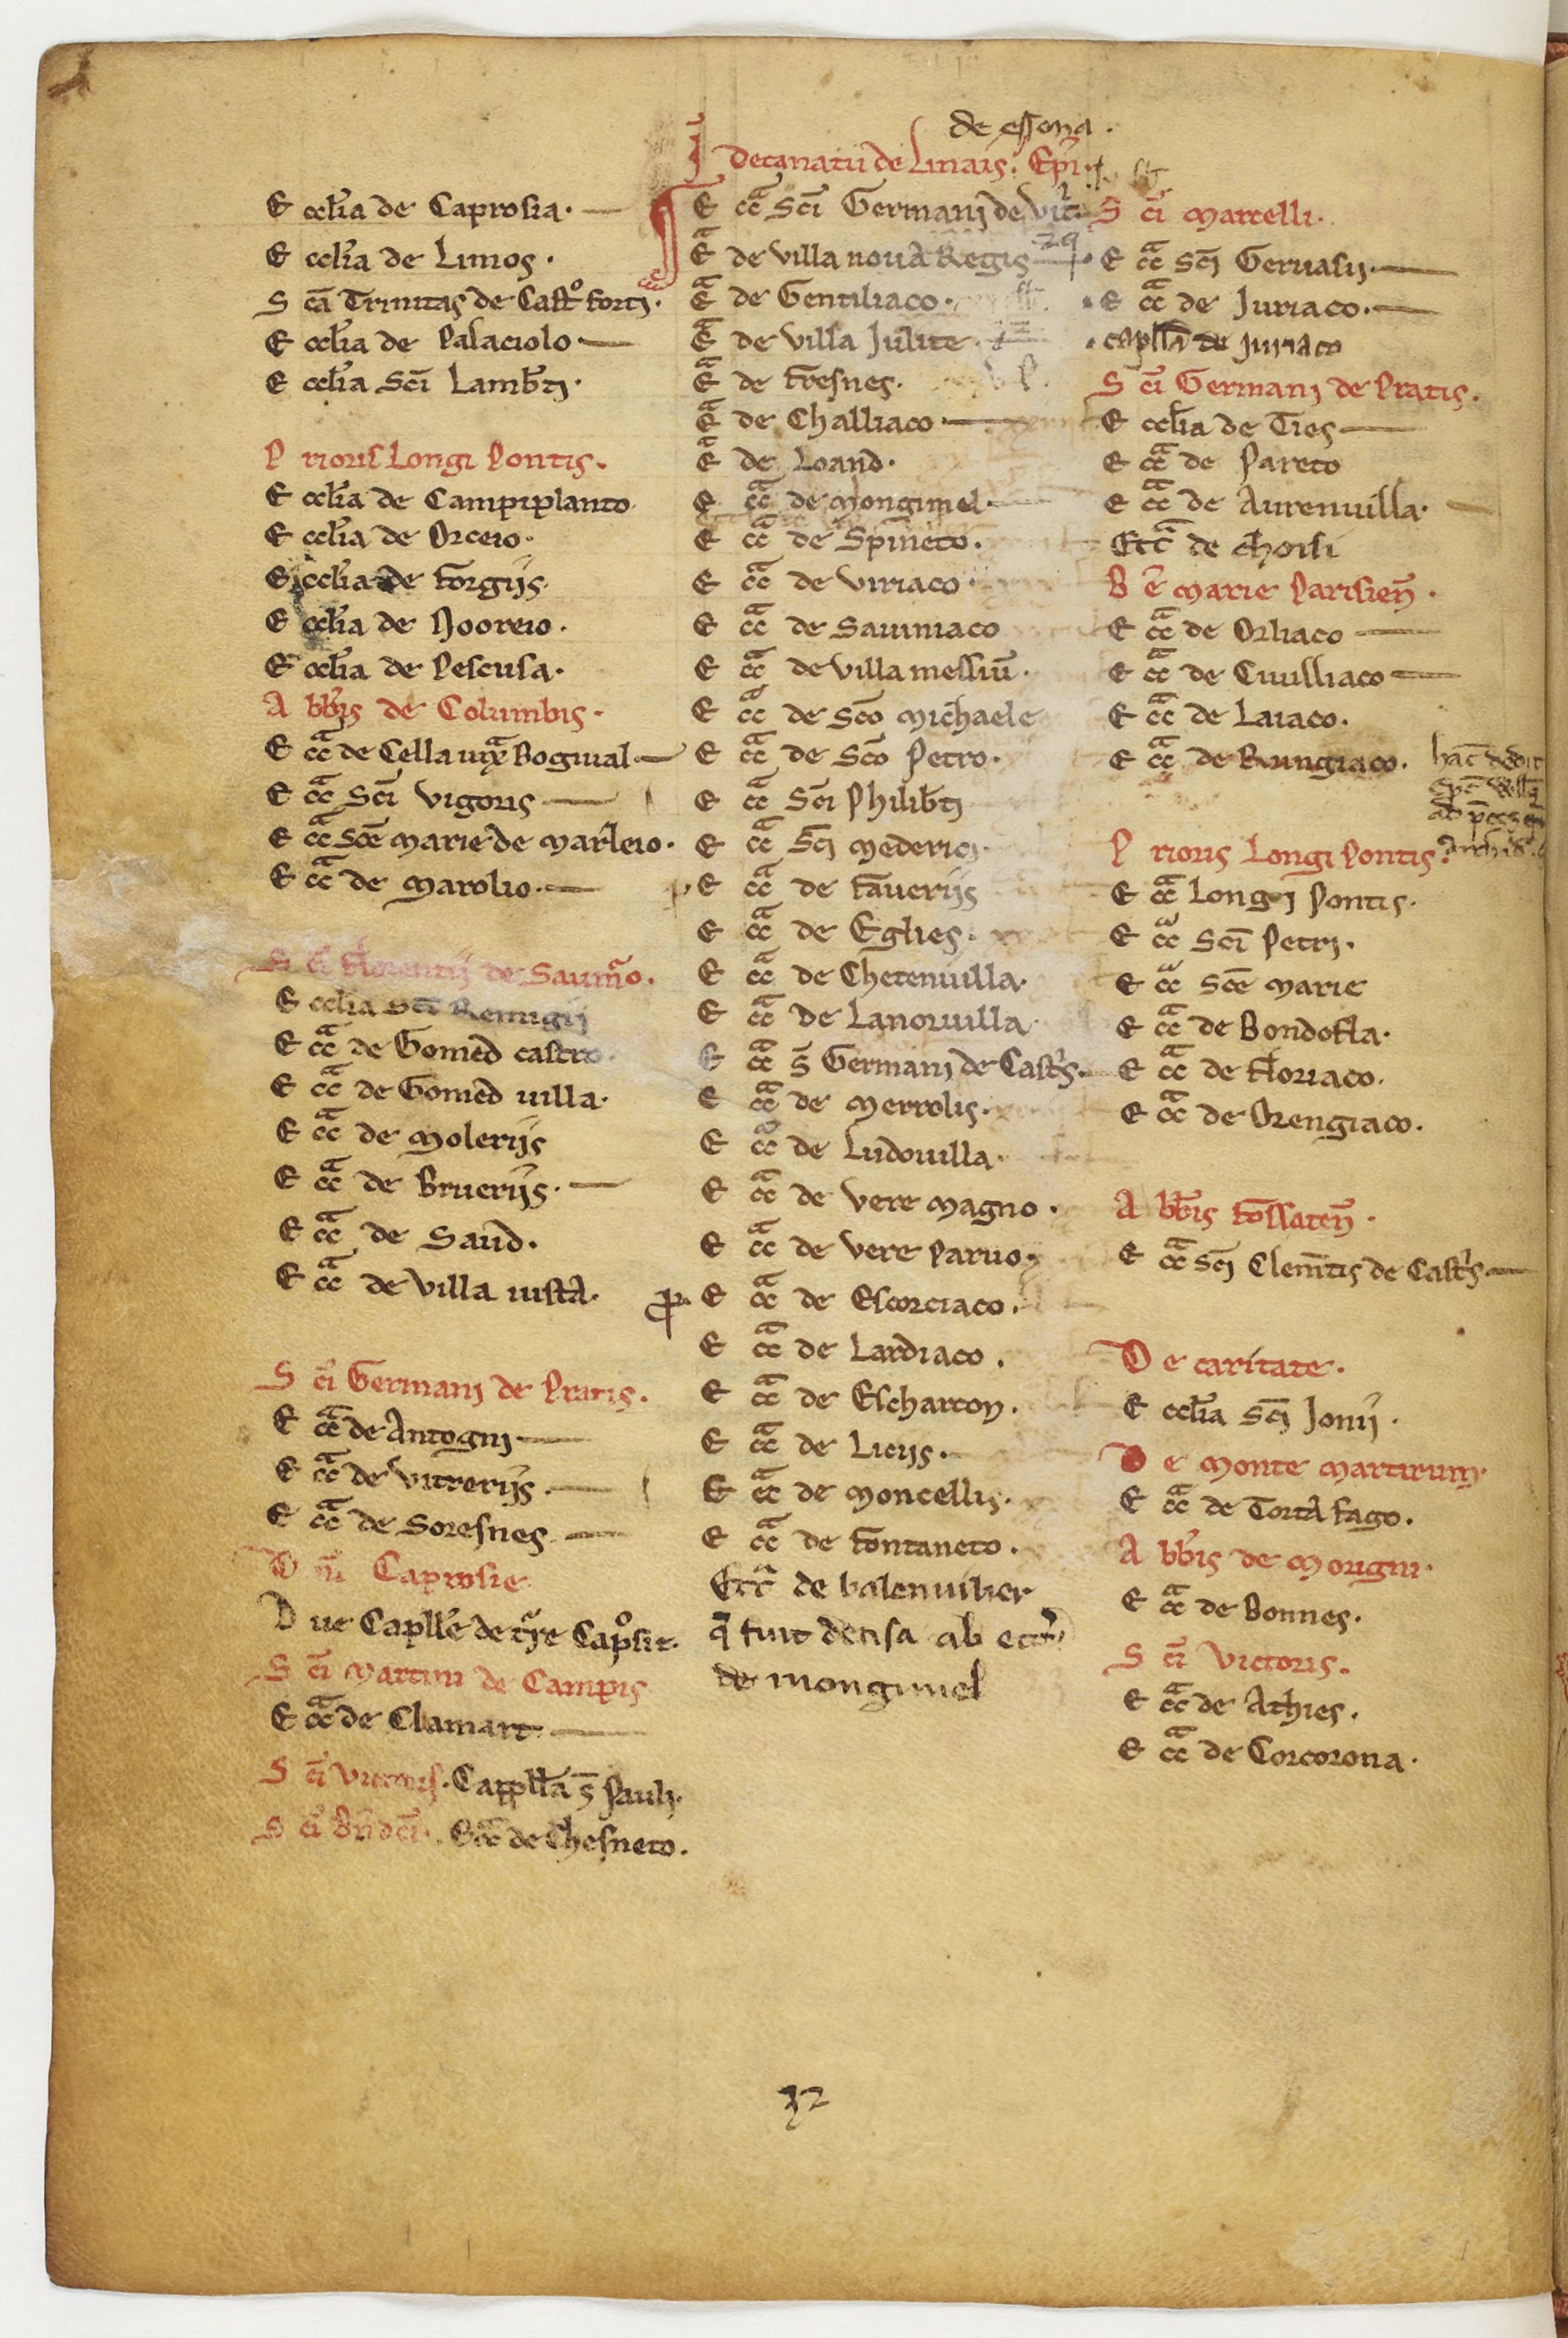 E ccl̄ia de Caprosia.
E ccl̄ia de Limos.
S c̄a Trinitas de Castᵒ forti.
E ccl̄ia de Palaciolo
E ccl̄ia Sc̄i Lamb̄ti.
P rioris Longi Pontis.
E ccl̄ia de Campiplanto
E ccl̄ia de Orceio.
E ccl̄ia de forgiis.
E ccl̄ia de Nooreio.
E ccl̄ia de Pescusa.
A bb̄is de Columbis.
E cc̄ᵃ de Cella iux̄ᵃ Bogiual.
E cc̄ᵃ Sc̄i Vigoris
E cc̄ᵃ Sc̄e Marie de Marleio.
E cc̄ᵃ de Marolio.
S c̄i florentii de Saumᵃo.
E ccl̄ia Sc̄i Remigii
E cc̄ᵃ de Gomed̄ castro.
E cc̄ᵃ de Gomed̄ uilla.
E cc̄ᵃ de Moleriis
E cc̄ᵃ de Brueriis.
E cc̄ᵃ de Saud̄.
E cc̄ᵃ de Villa iusta.
S c̄i Germani de Pratis.
E cc̄ᵃ de Antogni
E cc̄ᵃ de Vitreriis.
E cc̄ᵃ de Soresnes.
D n̄i Caprosie
D ue Capll̄e de tr̄re Capᵒsie.
S c̄i Martini de Campis
E cc̄ᵃ de Clamart
S c̄i Victoris. Cappll̄a S̄ Pauli.
S c̄i Bn̄dc̄i. Ecc̄ᵃ de Chesneto.
de essona.
I decanatu de Linais. Ep̄i.
E cc̄ᵃ Sc̄i Germani de Vitⁱ
Ēᵃ de Villa noua Regis
Ēᵃ de Gentiliaco.
Ēᵃ de Villa Julite.
Ēᵃ de fresnes.
Ēᵃ de Challiaco
Ēᵃ de Loand.
E cc̄ᵃ de Mongimel.
E cc̄ᵃ de Spineto.
E cc̄ᵃ de Viriaco.
E cc̄ᵃ de Sauiniaco
E cc̄ᵃ de Villa messiu̅.
E cc̄ᵃ de Sc̄o Michaele
E cc̄ᵃ de Sc̄o Petro.
E cc̄ᵃ Sc̄i Philib̄ti
E cc̄ᵃ Sc̄i Mederici.
E cc̄ᵃ de faueriis
E cc̄ᵃ de Eglies.
E cc̄ᵃ de Chetenuilla.
E cc̄ᵃ de Lanoruilla
E cc̄ᵃ S̄ Germani de Castⁱs.
E cc̄ᵃ de Merrolis.
E cc̄ᵃ de Ludouilla.
E cc̄ᵃ de Vere Magno.
E cc̄ᵃ de Vere Paruo.
E cc̄ᵃ de Escorciaco.
E cc̄ᵃ de Lardiaco.
E cc̄ᵃ de Escharcon.
E cc̄ᵃ de Liciis.
E cc̄ᵃ de Moncellis.
E cc̄ᵃ de fontaneto.
Ecc̄ᵃ de balenuilier
q̄ fuit decisa ab ecc̄ᵃ
de mongimel
S c̄i Marcelli.
E cc̄ᵃ Sc̄i Geruasii.
E cc̄ᵃ de Juriaco.
capll̄a de Juriaco
S c̄i Germani de Pratis.
E ccl̄ia de Ties
E cc̄ᵃ de Pareto
E cc̄ᵃ de Aurenuilla.
Ecc̄ᵃ de choisi
B e̅ Marie Parisien̄.
E cc̄ᵃ de Orliaco
E cc̄ᵃ de Ciuilliaco
E cc̄ᵃ de Laiaco.
E cc̄ᵃ de Rungiaco.
hāc dedit
P rioris Longi Pontis.
E cc̄ᵃ Longi Pontis.
E cc̄ᵃ Sc̄i Petri.
E cc̄ᵃ Sc̄e Marie
E cc̄ᵃ de Bondofla.
E cc̄ᵃ de floriaco.
E cc̄ᵃ de Orengiaco.
A bb̄is fossaten̄.
E cc̄ᵃ Sc̄i Clem̄tis de Castⁱs.
D e caritate.
E ccl̄ia Sc̄i Jonii.
D e Monte Martirum.
E cc̄ᵃ de Torta fago.
A bb̄is de Morigni.
E cc̄ᵃ de Bonnes.
S c̄i Victoris.
E cc̄ᵃ de Athies.
E cc̄ᵃ de Corcorona.
32